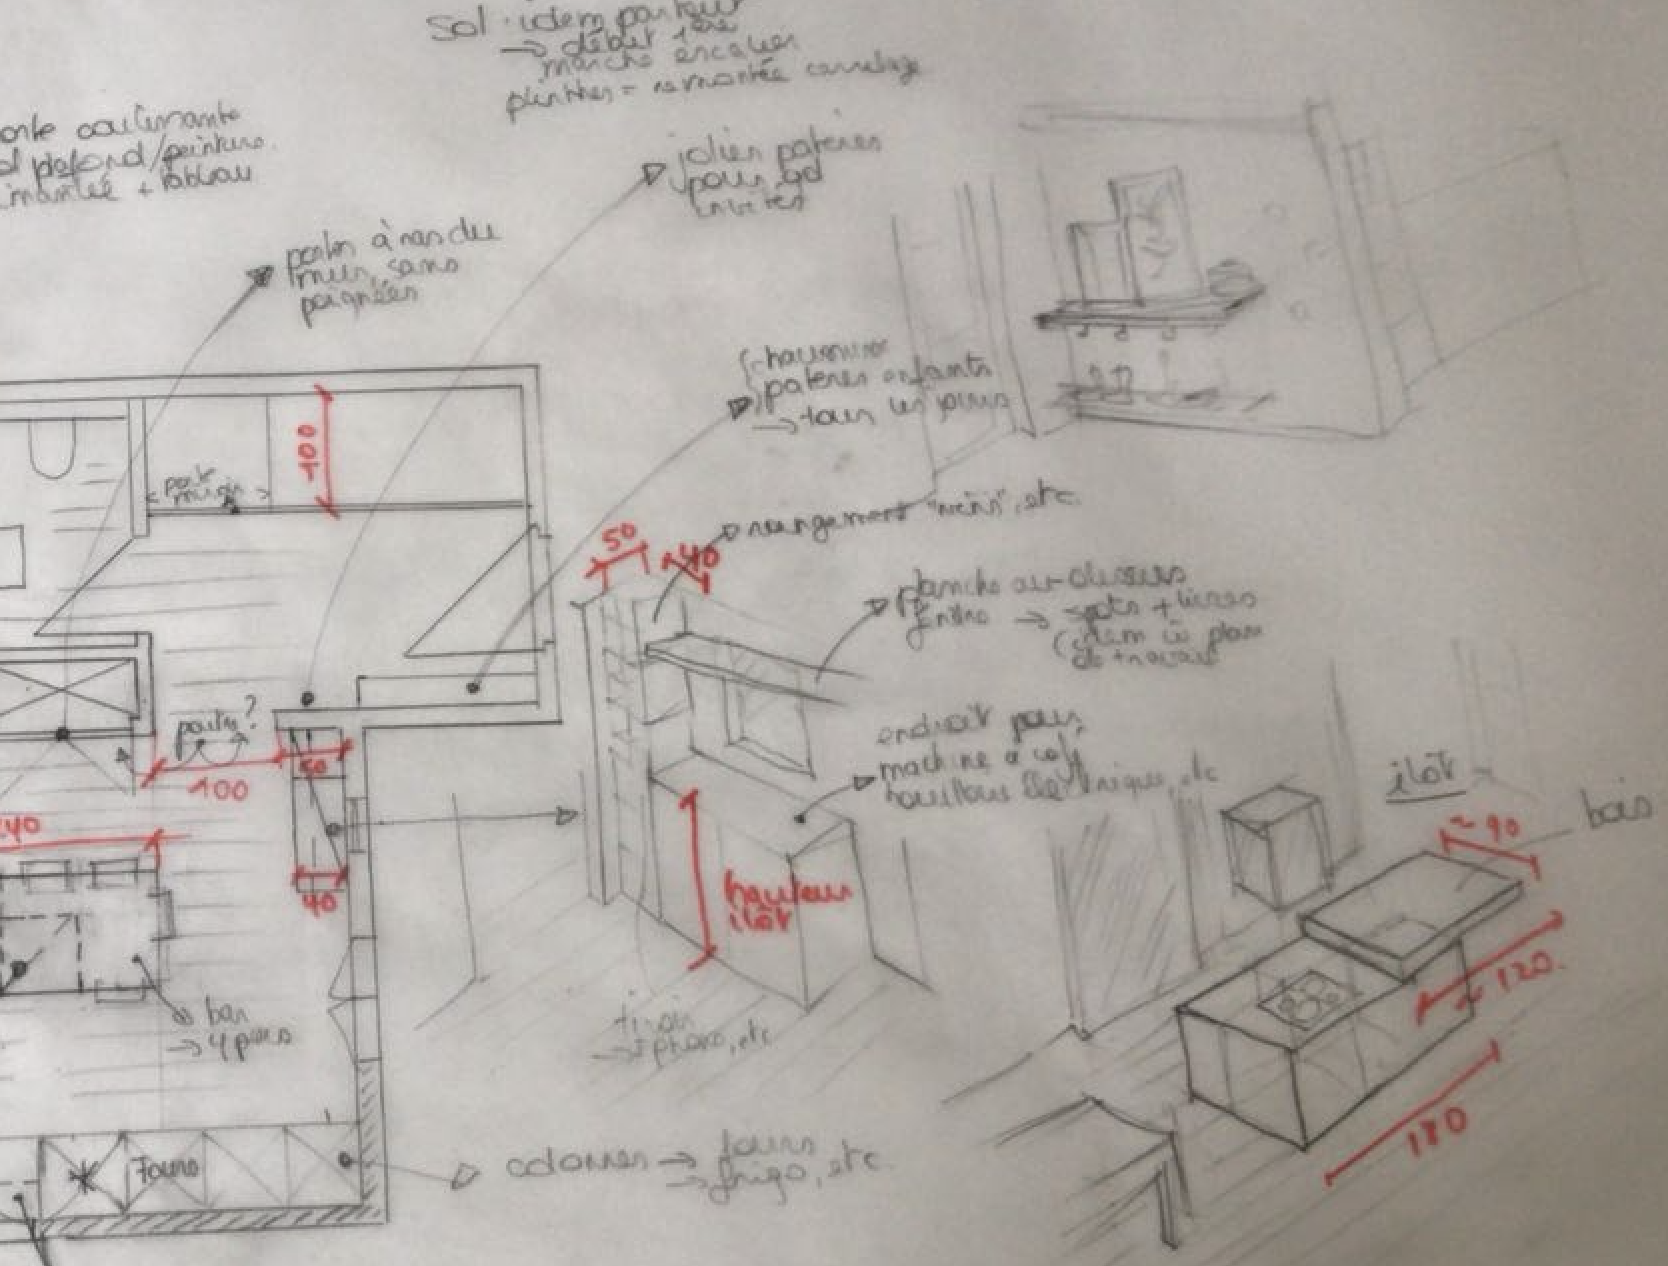 sol : idem partout
→ début 1ère
marche escalier
plinthes = remontée carrelage
coulissante
plafond/peinture
aimantée + tableau
jolies patères
pour qd
invités
portes à ras du
mur, sans
poignées
chaussures
patères enfants
→ tous les jours
100
porte
rangement "vins", etc.
50
40
planche au-dessus
fenêtre → spots + livres
(idem ic plan
de travail
poutre?
100
50
endroit pour
machine à café
bouilloire électrique, etc
îlot
~ 90
bois
40
40
hauteur
îlot
~ 120
bar
→ 4 pers
tiroir
→ iphone, etc
180
Fours
colonnes → fours
→ frigo, etc.